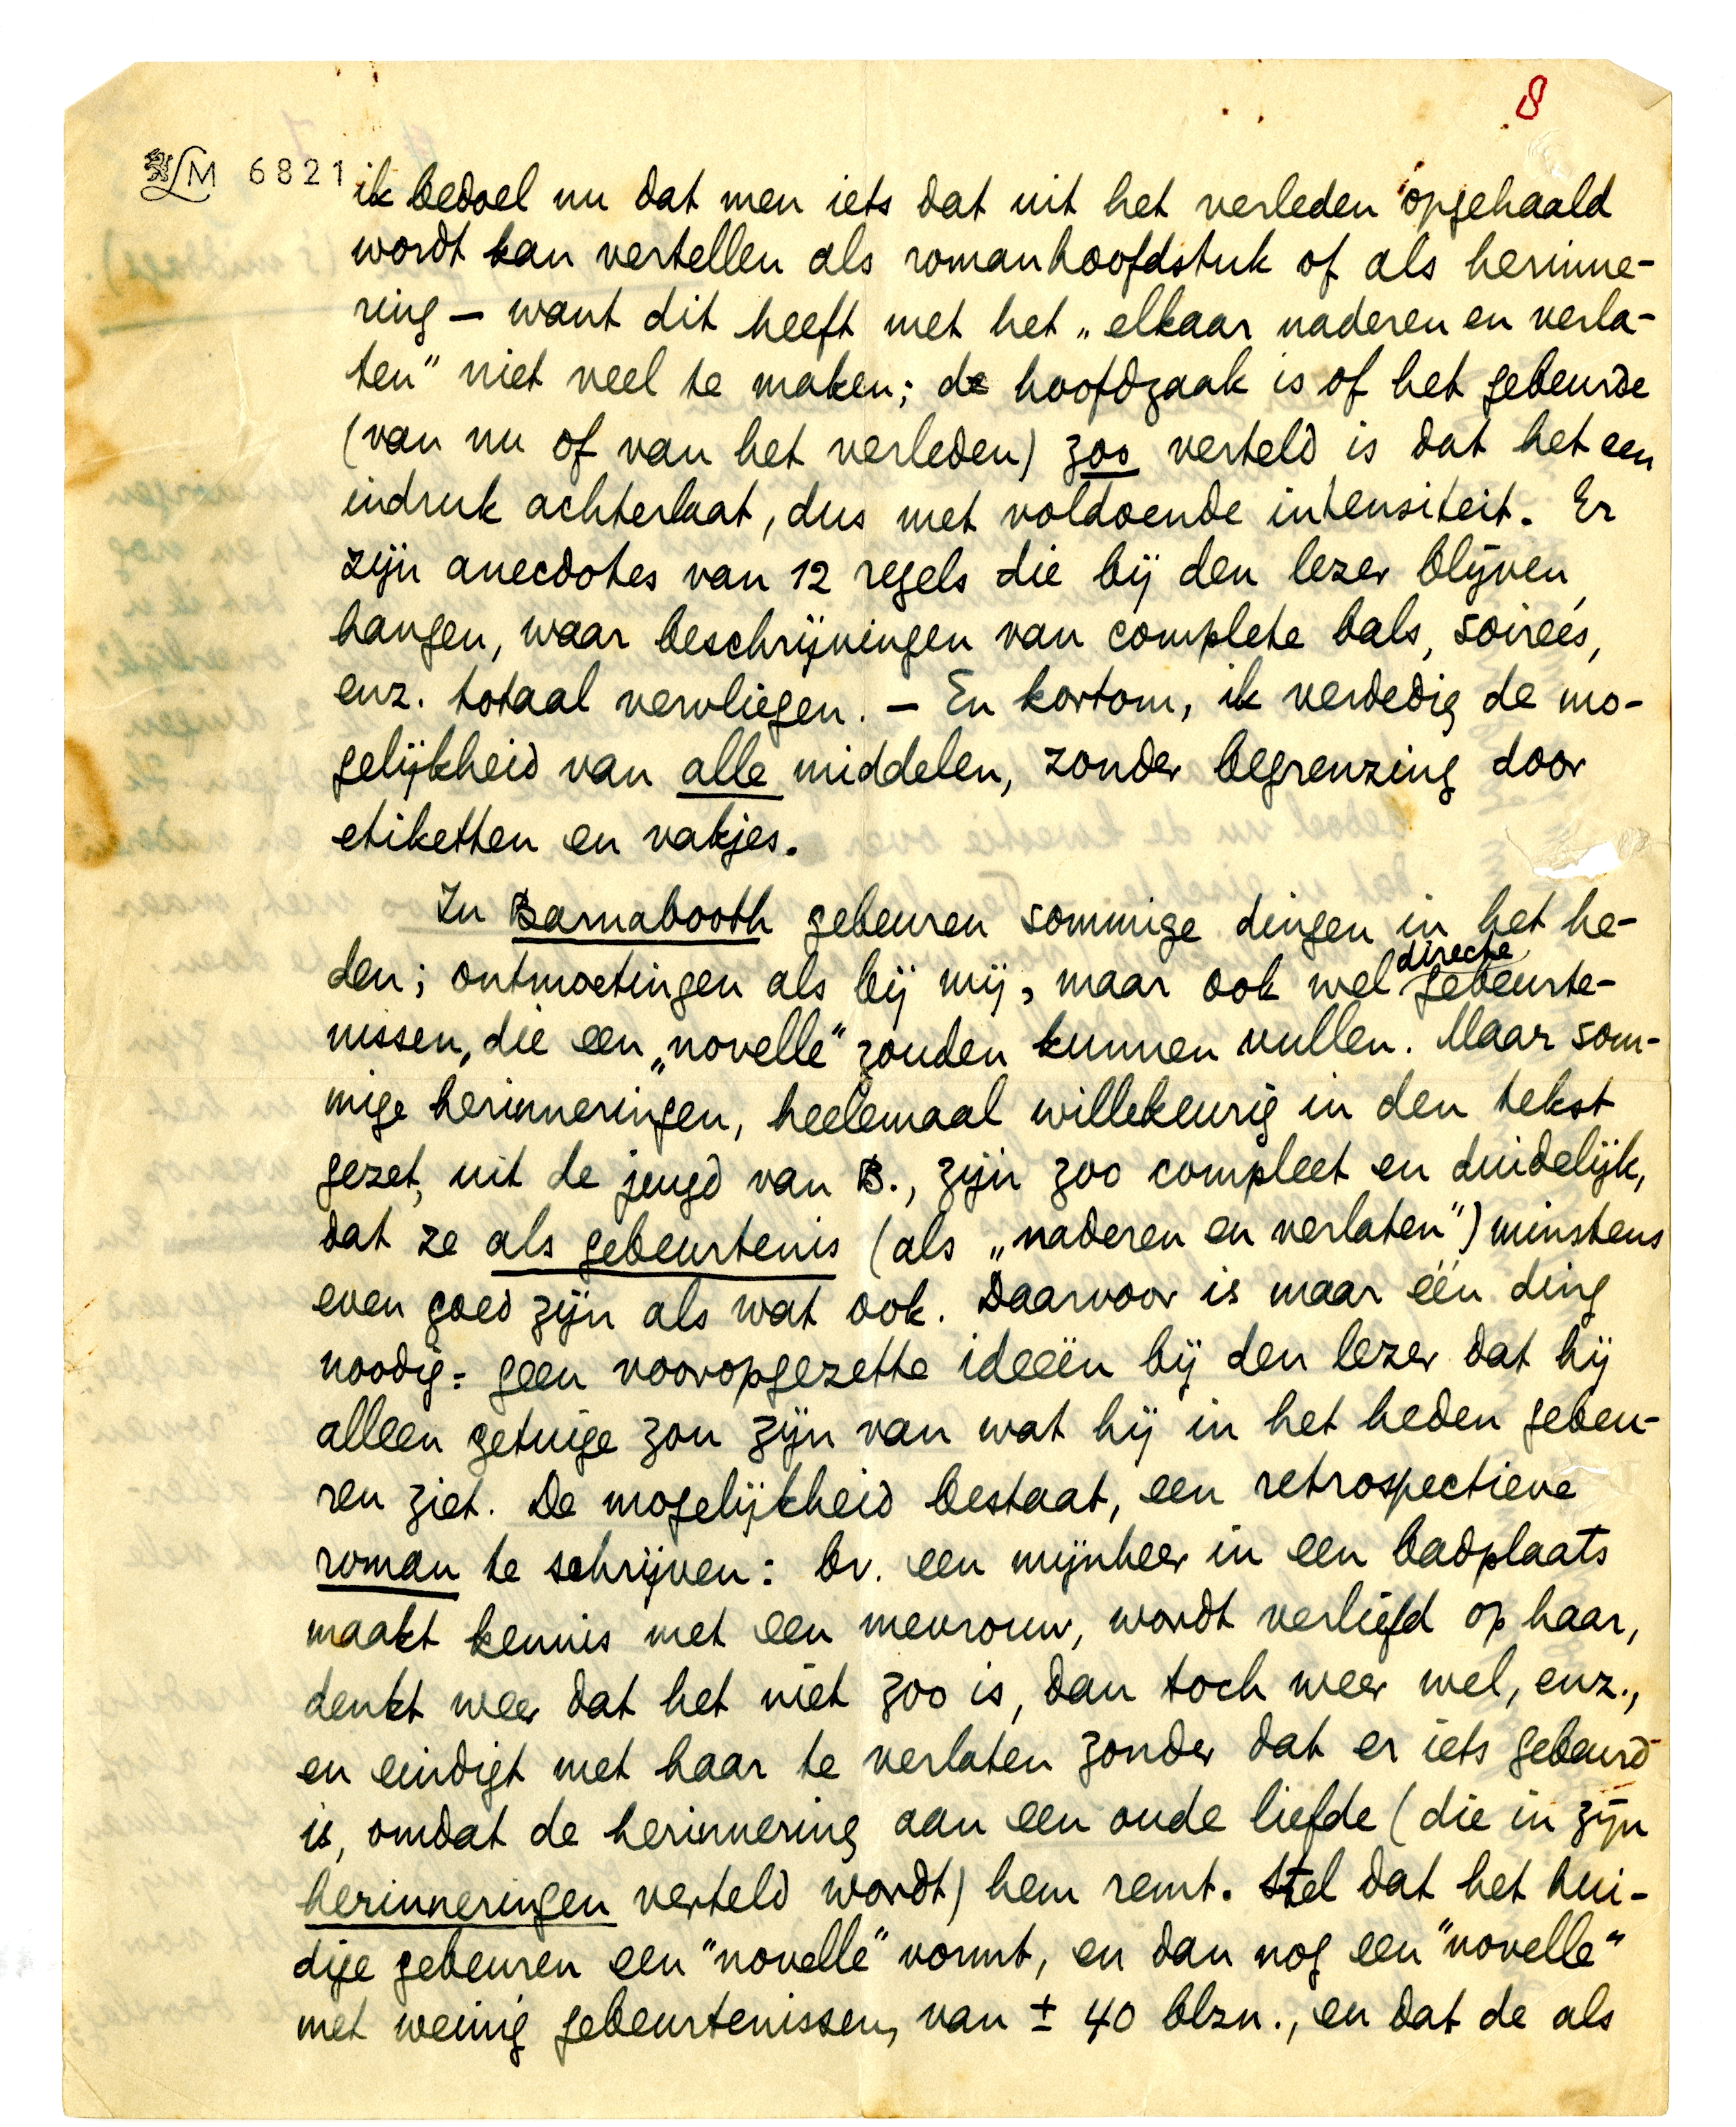 8
LM 6821
ik bedoel nu dat men iets dat uit het verleden opgehaald
wordt kan vertellen als romanhoofdstuk of als herinne-
ring — want dit heeft met het „elkaar naderen en verla-
ten" niet veel te maken; de hoofdzaak is of het gebeurde
(van nu of van het verleden) zoo verteld is dat het een
indruk achterlaat, dus met voldoende intensiteit. Er
zijn anecdotes van 12 regels die bij den lezer blijven
hangen, waar beschrijvingen van complete bals, soirées,
enz. totaal vervliegen. — En kortom, ik verdedig de mo-
gelijkheid van alle middelen, zonder begrenzing door
etiketten en vakjes.
In Barnabooth gebeuren sommige dingen in het he-
den; ontmoetingen als bij mij, maar ook wel directe gebeurte-
nissen, die een „novelle" zouden kunnen vullen. Maar som-
mige herinneringen, heelemaal willekeurig in den tekst
gezet, uit de jeugd van B., zijn zoo compleet en duidelijk,
dat ze als gebeurtenis (als „naderen en verlaten") minstens
even goed zijn als wat ook. Daarvoor is maar één ding
noodig: geen vooropgezette ideeën bij den lezer dat hij
alleen getuige zou zijn van wat hij in het heden gebeu-
ren ziet. De mogelijkheid bestaat, een retrospectieve
roman te schrijven: bv. een mijnheer in een badplaats
maakt kennis met een mevrouw, wordt verliefd op haar,
denkt weer dat het niet zoo is, dan toch weer wel, enz.,
en eindigt met haar te verlaten zonder dat er iets gebeurd
is, omdat de herinnering aan een oude liefde (die in zijn
herinneringen verteld wordt) hem remt. Stel dat het hui-
dige gebeuren een "novelle" vormt, en dan nog een "novelle"
met weinig gebeurtenissen, van ± 40 blzn., en dat de als